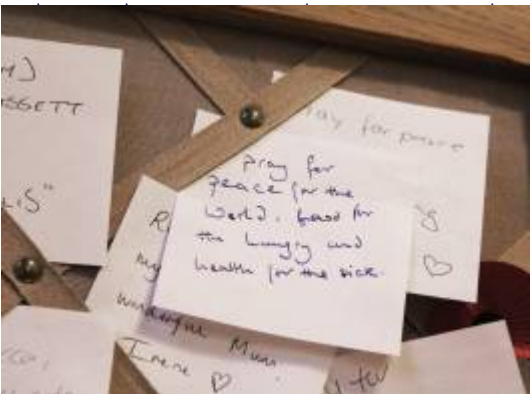 M)
GGETT
"
pray for peace
pray for
peace for the
World, food for
the hungry and
health for the sick.
my
wonderful Mum
Irene ♡
♡